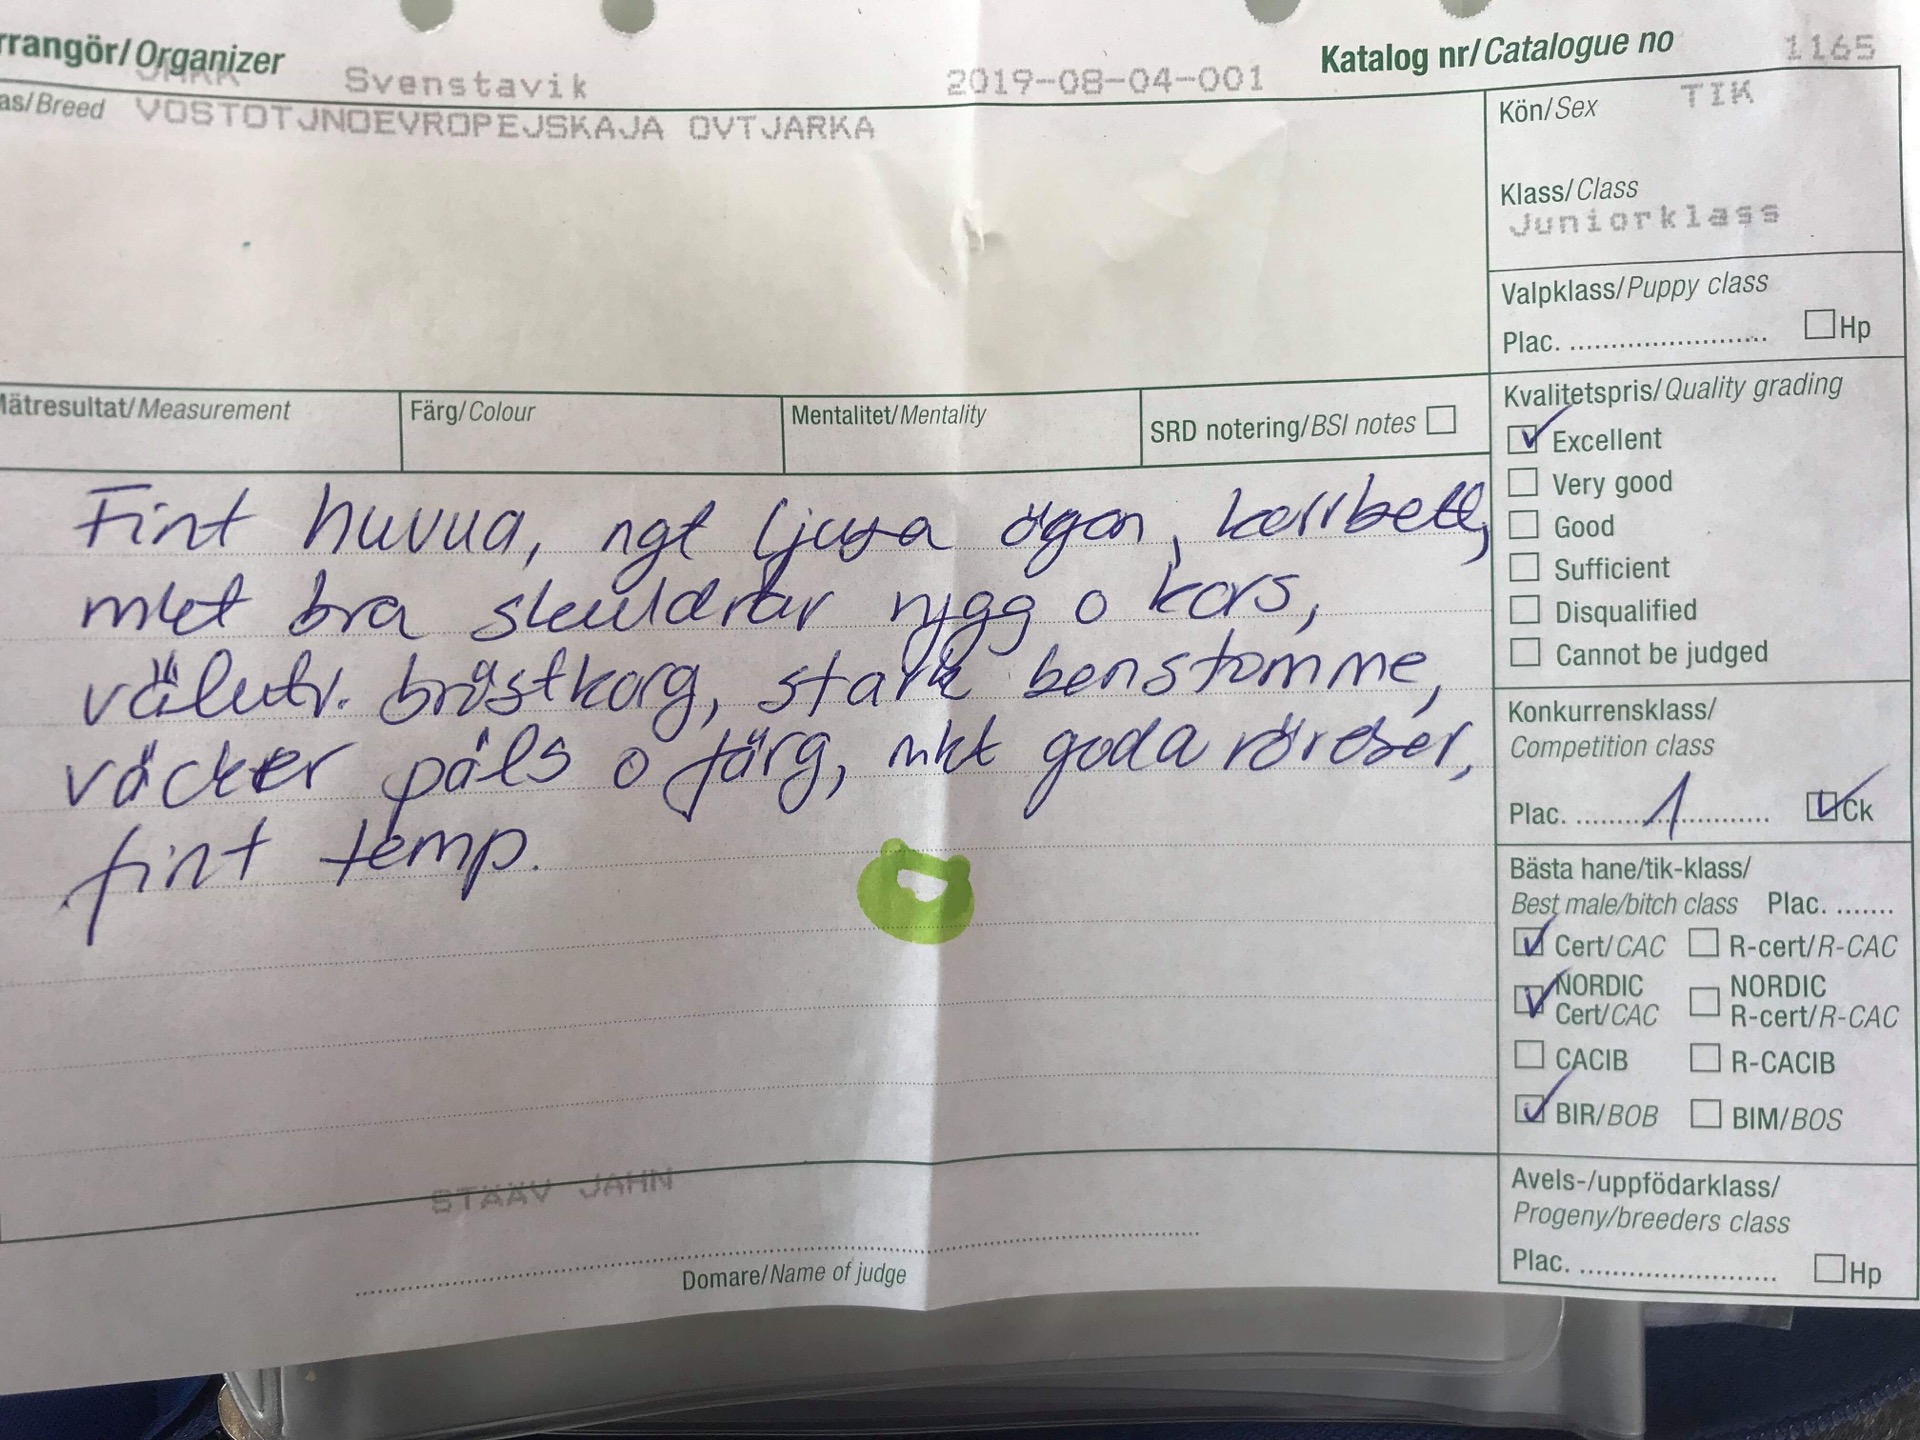 rrangör/Organizer
JHKK Svenstavik 2019-08-04-001 Katalog nr/Catalogue no 1165
as/Breed VOSTOTJNOEVROPEJSKAJA OVTJARKA
Kön/Sex TIK
Klass/Class
Juniorklass
Valpklass/Puppy class
Plac. .......................... Hp
Mätresultat/Measurement Färg/Colour Mentalitet/Mentality SRD notering/BSI notes
Kvalitetspris/Quality grading
Excellent
Very good
Good
Sufficient
Disqualified
Cannot be judged
Fint huvud, ngt ljusa ögon, korrbett,
mkt bra skuldror rygg o kors,
välutv. bröstkorg, stark benstomme,
vacker päls o färg, mkt goda rörelser,
fint temp.
Konkurrensklass/
Competition class
Plac. .......1.............. Ck
Bästa hane/tik-klass/
Best male/bitch class Plac. .......
Cert/CAC R-cert/R-CAC
NORDIC NORDIC
Cert/CAC R-cert/R-CAC
CACIB R-CACIB
BIR/BOB BIM/BOS
Avels-/uppfödarklass/
Progeny/breeders class
Plac. .......................... Hp
STÄÄV JAHN
Domare/Name of judge